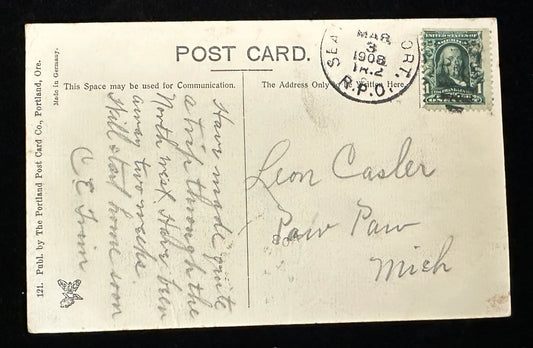 POST CARD.
This Space may be used for Communication.
The Address Only to be Written Here.
121. Publ. by The Portland Post Card Co., Portland, Ore.
Made in Germany.
Have made quite
a trip through the
North west. Have been
away two weeks.
Will start home soon
C E
Leon Casler
Paw Paw
Mich
SEA ORT.
MAR
3
1908
TR.2
R.P.O.
UNITED STATES OF AMERICA
1 1